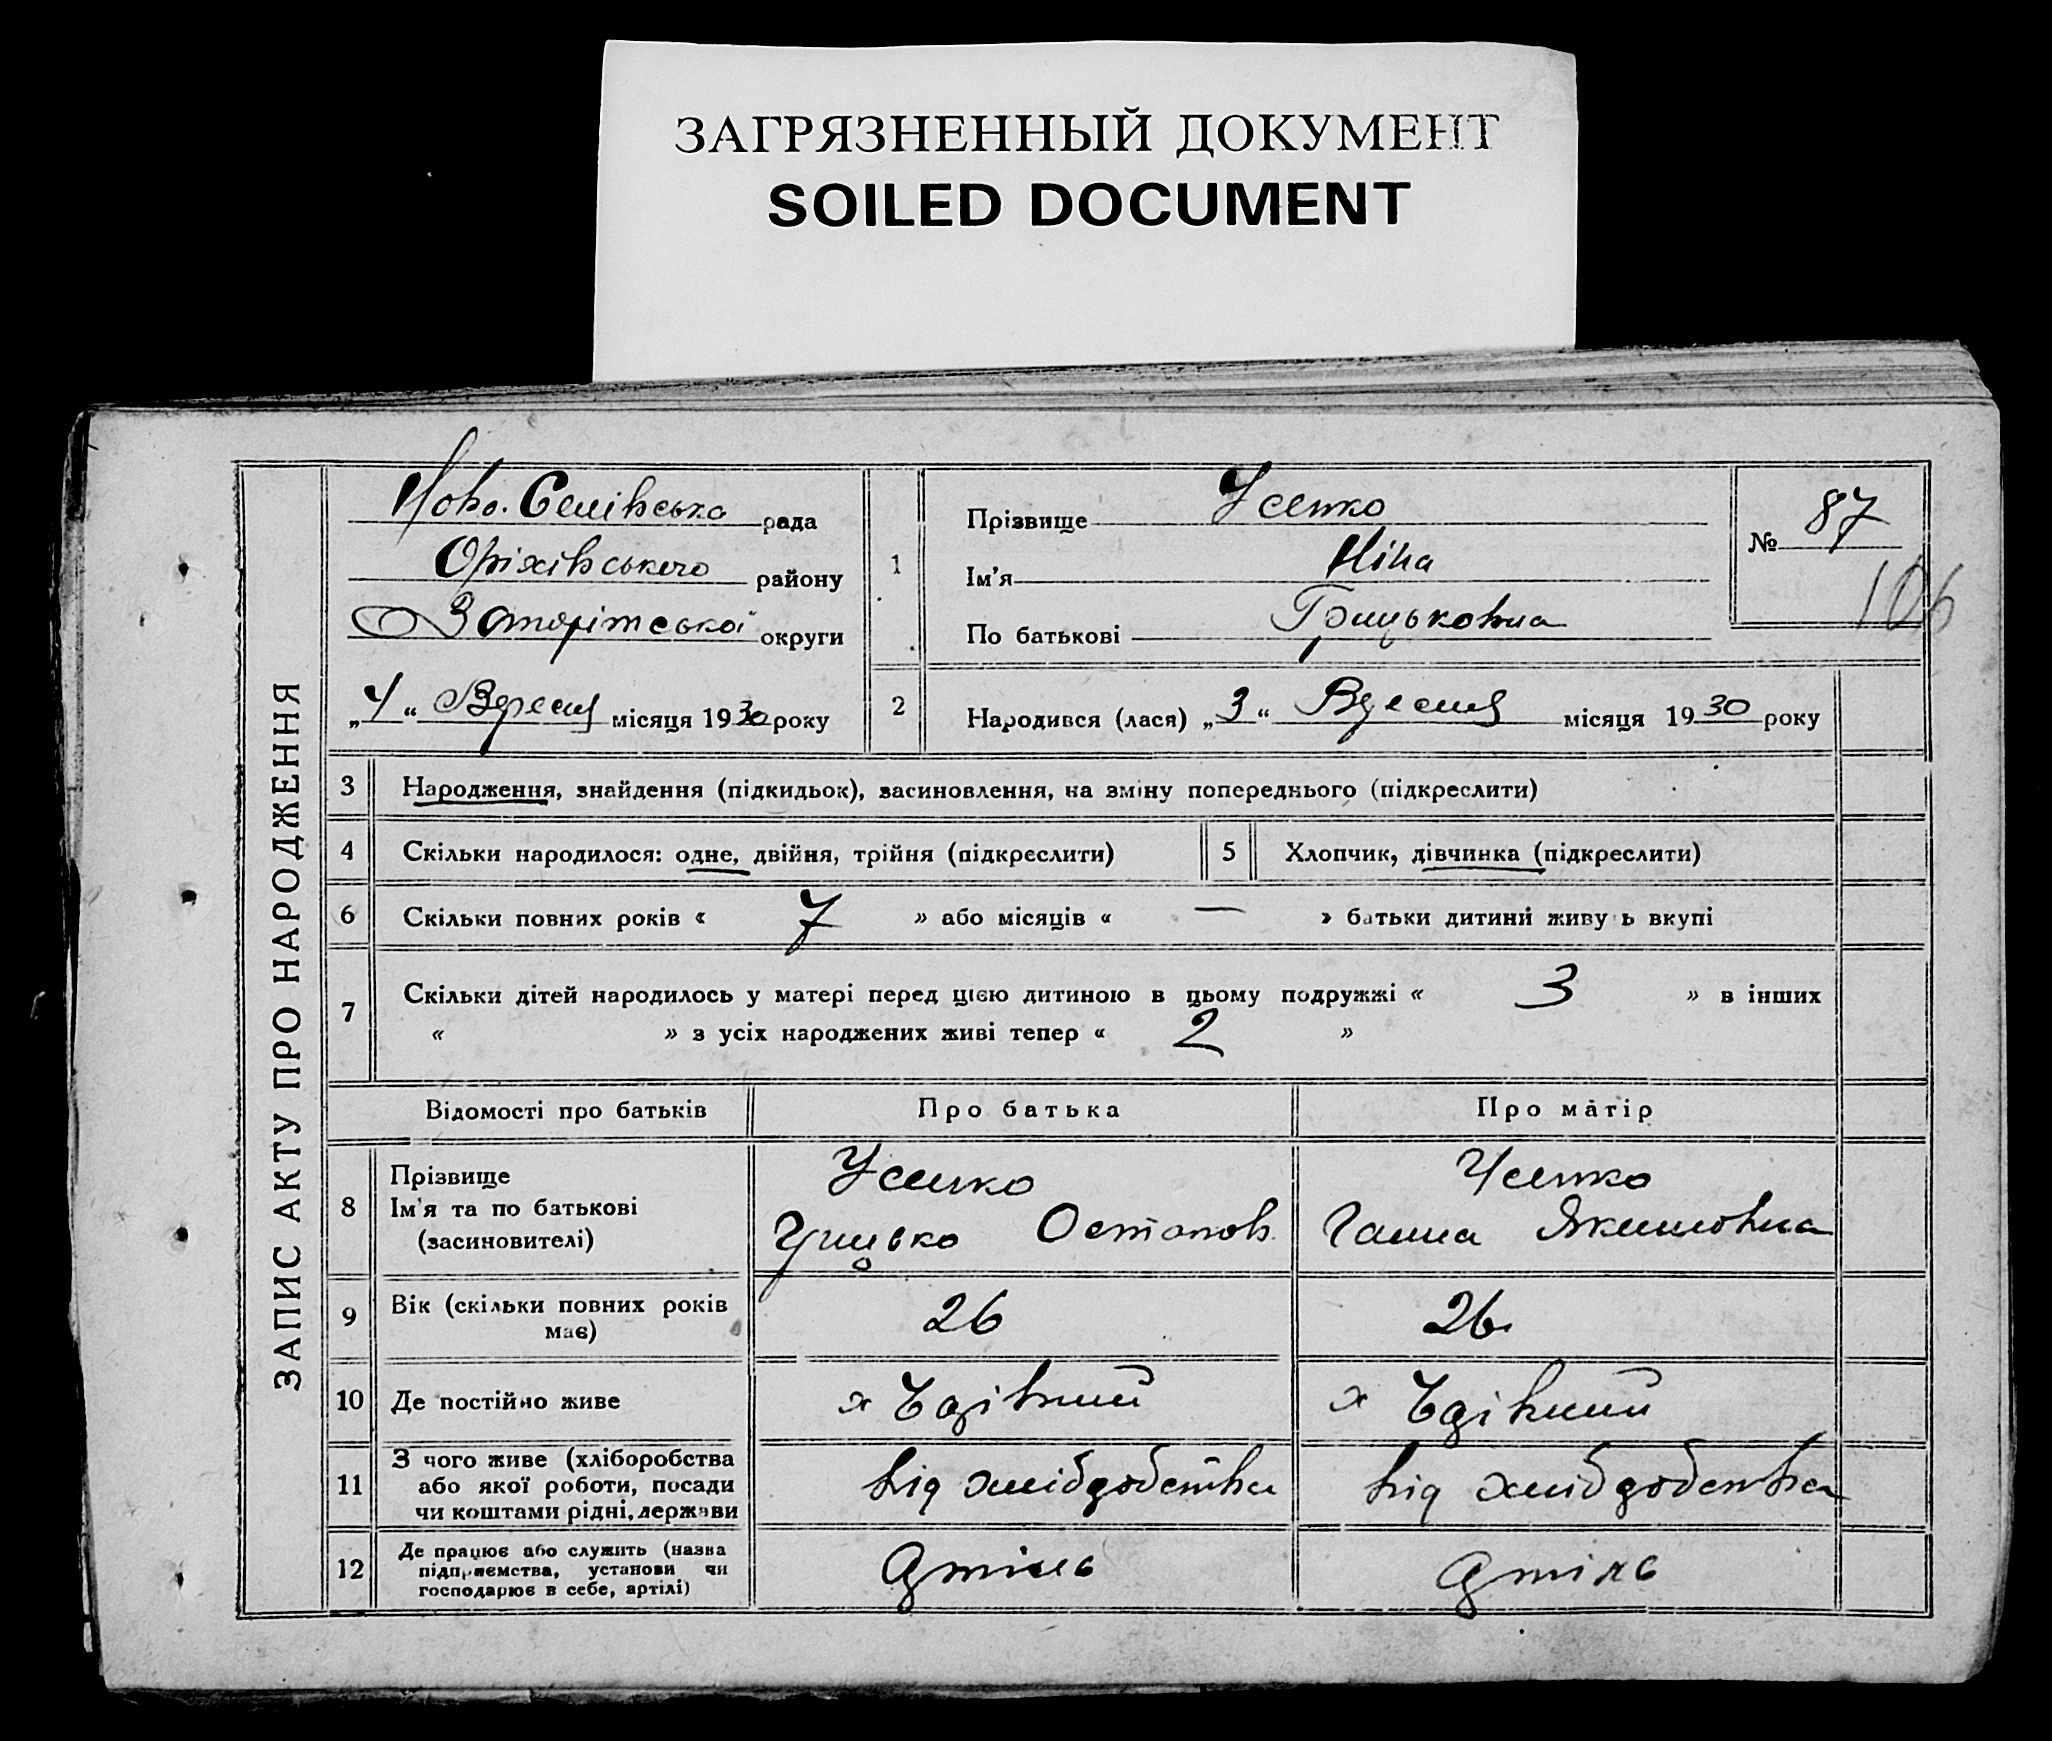 ЗАГРЯЗНЕННЫЙ ДОКУМЕНТ
SOILED DOCUMENT
ЗАПИС АКТУ ПРО НАРОДЖЕННЯ
Ново. Селівська рада
Оріхівського району
Запоріжської округи
„4“ Вересня місяця 1930 року
1
Прізвище Усенко
Ім'я Ніна
По батькові Грицьковна
№ 87
106
2
Народився (лася) „3“ Вересня місяця 1930 року
3 Народження, знайдення (підкидьок), засиновлення, на зміну попереднього (підкреслити)
4 Скільки народилося: одне, двійня, трійня (підкреслити)
5 Хлопчик, дівчинка (підкреслити)
6 Скільки повних років « 7 » або місяців « — » батьки дитини живу ь вкупі
7 Скільки дітей народилось у матері перед цією дитиною в цьому подружжі « 3 » в інших
« » з усіх народжених живі тепер « 2 »
Відомості про батьків Про батька Про матір
8
Прізвище
Ім'я та по батькові
(засиновителі)
Усенко
Грицько Остапов.
Усенко
Ганна Якимовна
9
Вік (скільки повних років
має)
26
26
10 Де постійно живе
х
х
11
З чого живе (хліборобства
або якої роботи, посади
чи коштами рідні, держави
від хлібробства
від хлібробства
12
Де працює або служить (назва
підприємства, установи чи
господарює в себе, артілі)
Артіль
Артіль